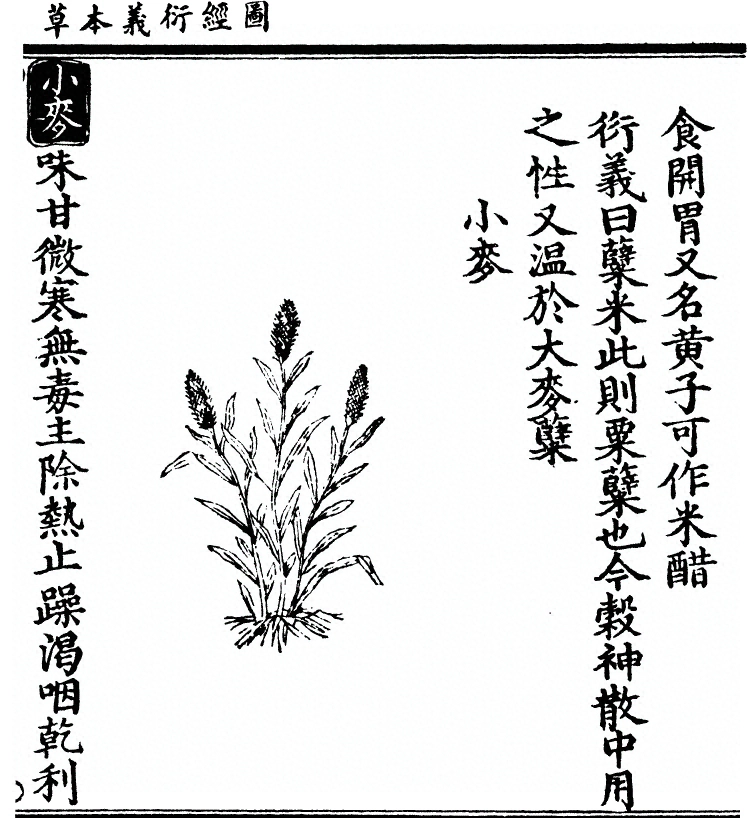 圖經衍義本草
食開胃又名黄子可作米醋
衍義曰糵米此則粟糵也今穀神散中用
之性又温於大麥糵
小麥
小麥味甘微寒無毒主除熱止躁渴咽乾利